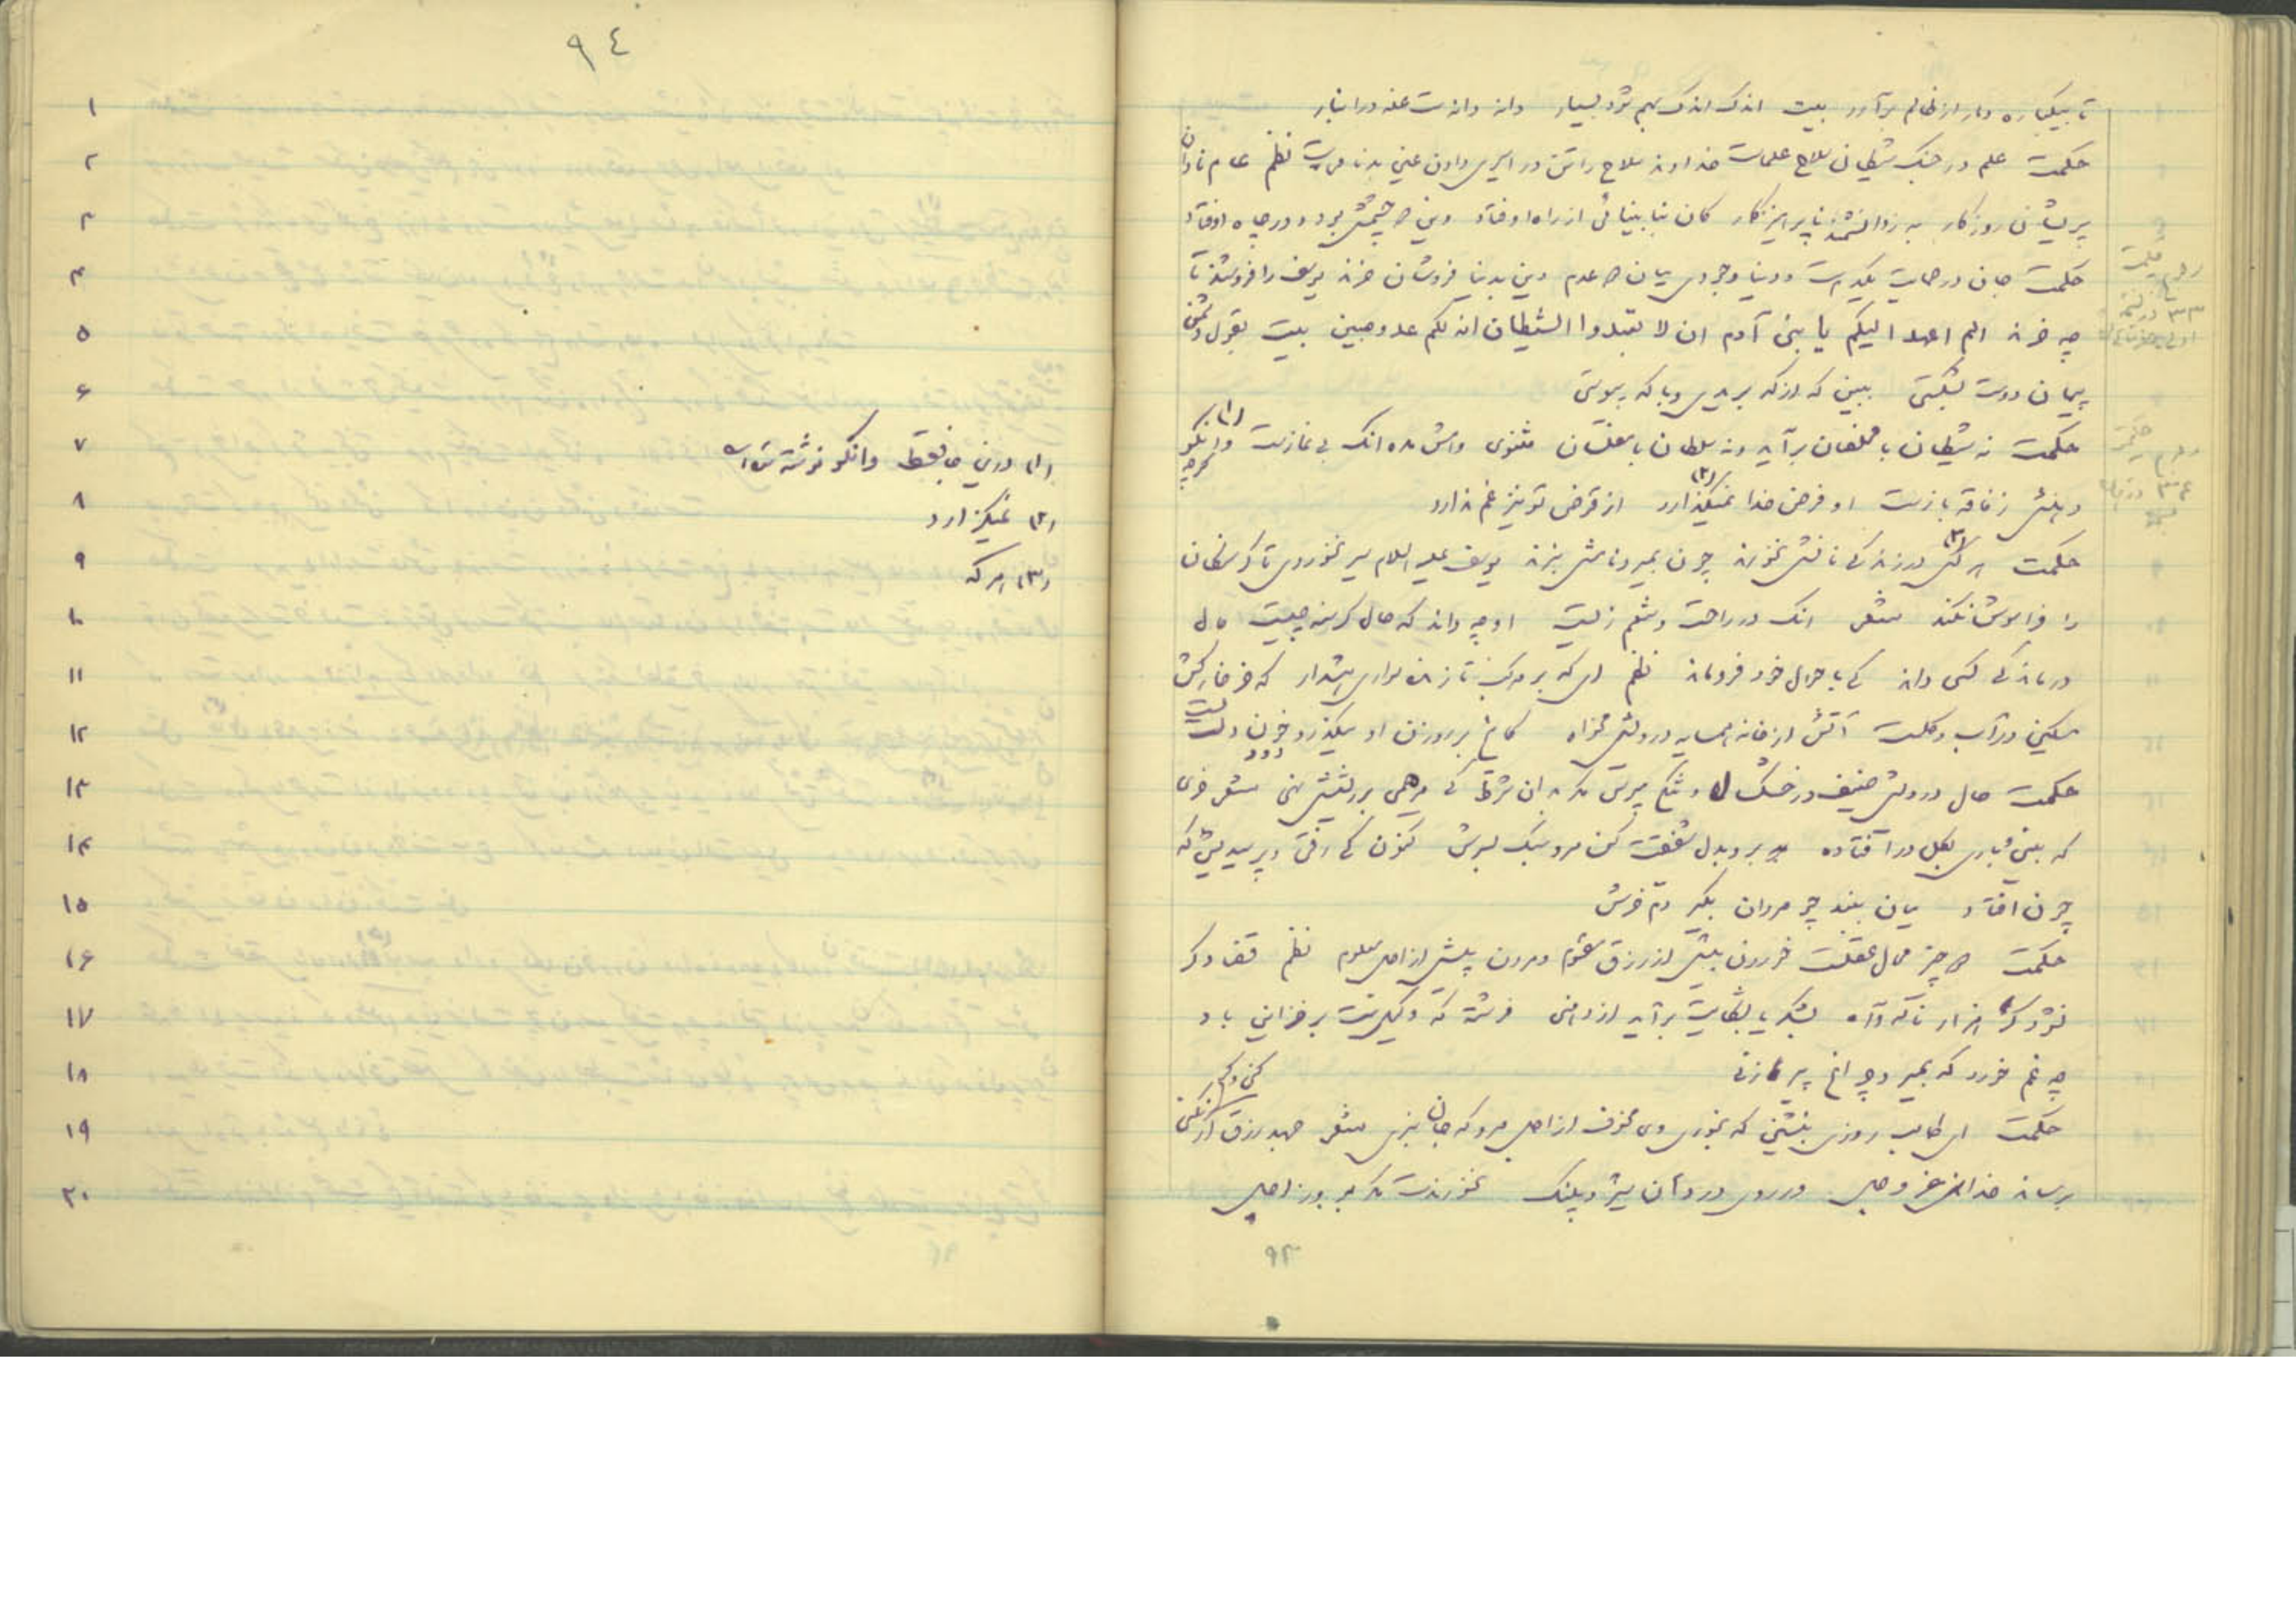 تا بیکباره دمار از ظالم برآرد بیت اندک اندک بهم شود بسیار دانه دانه است غله در انبار
حکمت علم در جنگ شیطان سلاح علماست خداوند سلاح را تن در اسیری دادن عین بدنامیست نظم عام نادان
پریشان روزگار به ز دانشمند ناپرهیزگار کان بنابینائی از راه اوفتاد وین دو چشمش بود و در چاه اوفتاد
حکمت جان در حمایت یکدمست و دنیا وجودی میان دو عدم دین بدنیا فروشان خرند یوسف را فروشند تا
چه خرند الم اعهد الیکم یا بنی آدم ان لا تعبدوا الشیطان انه لکم عدو مبین بیت بقول دشمن
پیمان دوست بشکستی ببین که از که بریدی و با که پیوستی
حکمت نه شیطان با مخلصان برآید و نه سلطان با مفلسان مثنوی وامش مده آنک بی نمازست (۱) وانگو گرچه
دهنش ز فاقه بازست او فرض خدا نمیگذارد (۲) از قرض تو نیز غم ندارد
حکمت هر کش (۳) در زندگی نانش نخورند چون بمیرد نامش نبرند یوسف علیه السلام سیر نخوردی تا گرسنگان
را فراموش نکند شعر آنک در راحت و تنعم زیست او چه داند که حال گرسنه چیست حال
درماندگی کسی داند کی باحوال خود فروماند نظم ای که بر مرکب تازنده سواری هشدار که خر خارکش
مسکین در آب و گلست آتش از خانه همسایه درویش مخواه کانچ بر روزن او میگذرد خون دلست دود
حکمت حال درویش ضعیف در خشک سال و تنگی مپرس مگر بدان شرط کی مرهمی بر ریشش نهی شعر خری
که بینی و باری بگل در آفتاده برو بدل شفقت کن مرو سبک بسرش کنون کی رفتی و پرسیدیش که
چون افتاد میان ببند چو مردان بگیر دم خرش
حکمت دو چیز محال عقلست خوردن بیش از رزق مقسوم و مردن پیش از اجل معلوم نظم قضا دگر
نشود گر هزار ناله و آه بشکر یا بشکایت برآید از دهنی فرشته که وکیلست بر خزاین باد
چه غم خورد که بمیرد چراغ پیرزنی
حکمت ای طالب روزی بنشین که بخوری و ی مخوف از اجل مرو که جان نبری شعر جهد رزق ار کنی وگر نکنی
برساند خدای عز و جل ور روی در دهان شیر و پلنگ نخورندت مگر بروز اجل
۹۳
۳۳
۳۴
۹٤
۱
۲
۳
۴
۵
۶
۷ (۱) درین جا فقط وانگو نوشته شده
۸ (۲) نمیگزارد
۹ (۳) هر که
۱۰
۱۱
۱۲
۱۳
۱۴
۱۵
۱۶
۱۷
۱۸
۱۹
۲۰